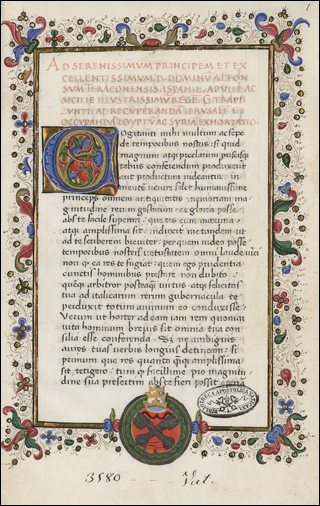 AD SERENISSIMVM PRINCIPEM ET EX
CELLENTISSIMVM D. DOMINVM ALFON
SVM TERACONENSIS ISPANIE APVLIE AC
SICILIE ILLVSTRISSIMV REGE. G. TRAPE
ZVNTII AD RECVPERANDA IERVSALE ET
OCCVPANDA EGYPTV AC SYRIA EXHORTATIO.
Cogitanti mihi multum ac sepe
de temporibus nostris: si quid
magnum atq preclarum
conferendum produxerit
aut productura uideantur: in
mentem uenit solet humanissime
princeps omnem antiquitatis memoriam ma
gnitudine rerum gestarum: ac gloria posse
abs te facile superari. que res cum maxima
atq amplissima sit: induxit me tandem ut
ad te scriberem breuiter: per quem uideo posse
temporibus nostris uetustatem omni laude uinci
non q ea res te fugiat: quem ego prudentia
cunctis hominibus prestare non dubito:
arbitror postq uirtus atq felicitas
tua ad italicarum rerum gubernacula te
perduxit totum animum eo conduxisse.
Verum ut horter ad eam iam rem quoniam
uita hominum breuis sit omnia tua con
silia esse conferenda. Sed ne ambiguis
aures tuas uerbis longius detineam: si
primum que res quanta quamq amplissima
sit: tetigero: tum facillime pro magnitu
dine sua presertim abs te fieri possit
BIBLIOTHECA APOSTOLICA VATICANA
3580 - - Vat.